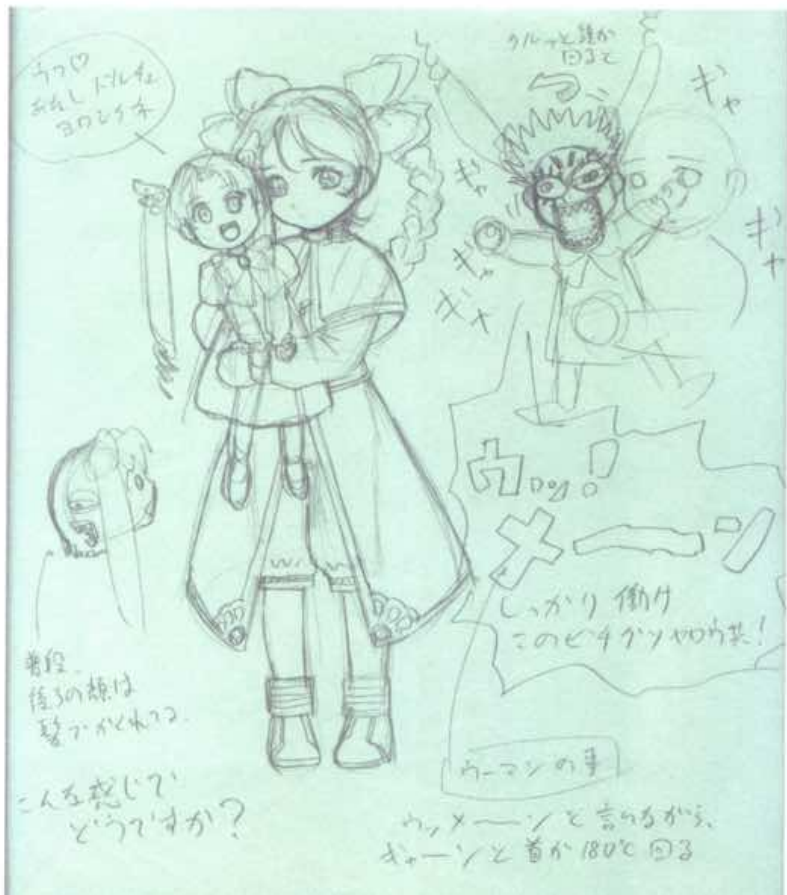 ウフ♡
あたし ドルチェ
ヨロシクネ
クルッと誰か
回ると
ギャ
ギャ
ギャ
ギャ
ギャ
ウッ!
メーン
しっかり働け
このビチグソヤロウ共!
普段、
後ろの顔は
髪でかくれてる
こんな感じで
どうですか?
ウーマンの事
ウッメーンと言いながら、
ギャーンと首が180℃回る